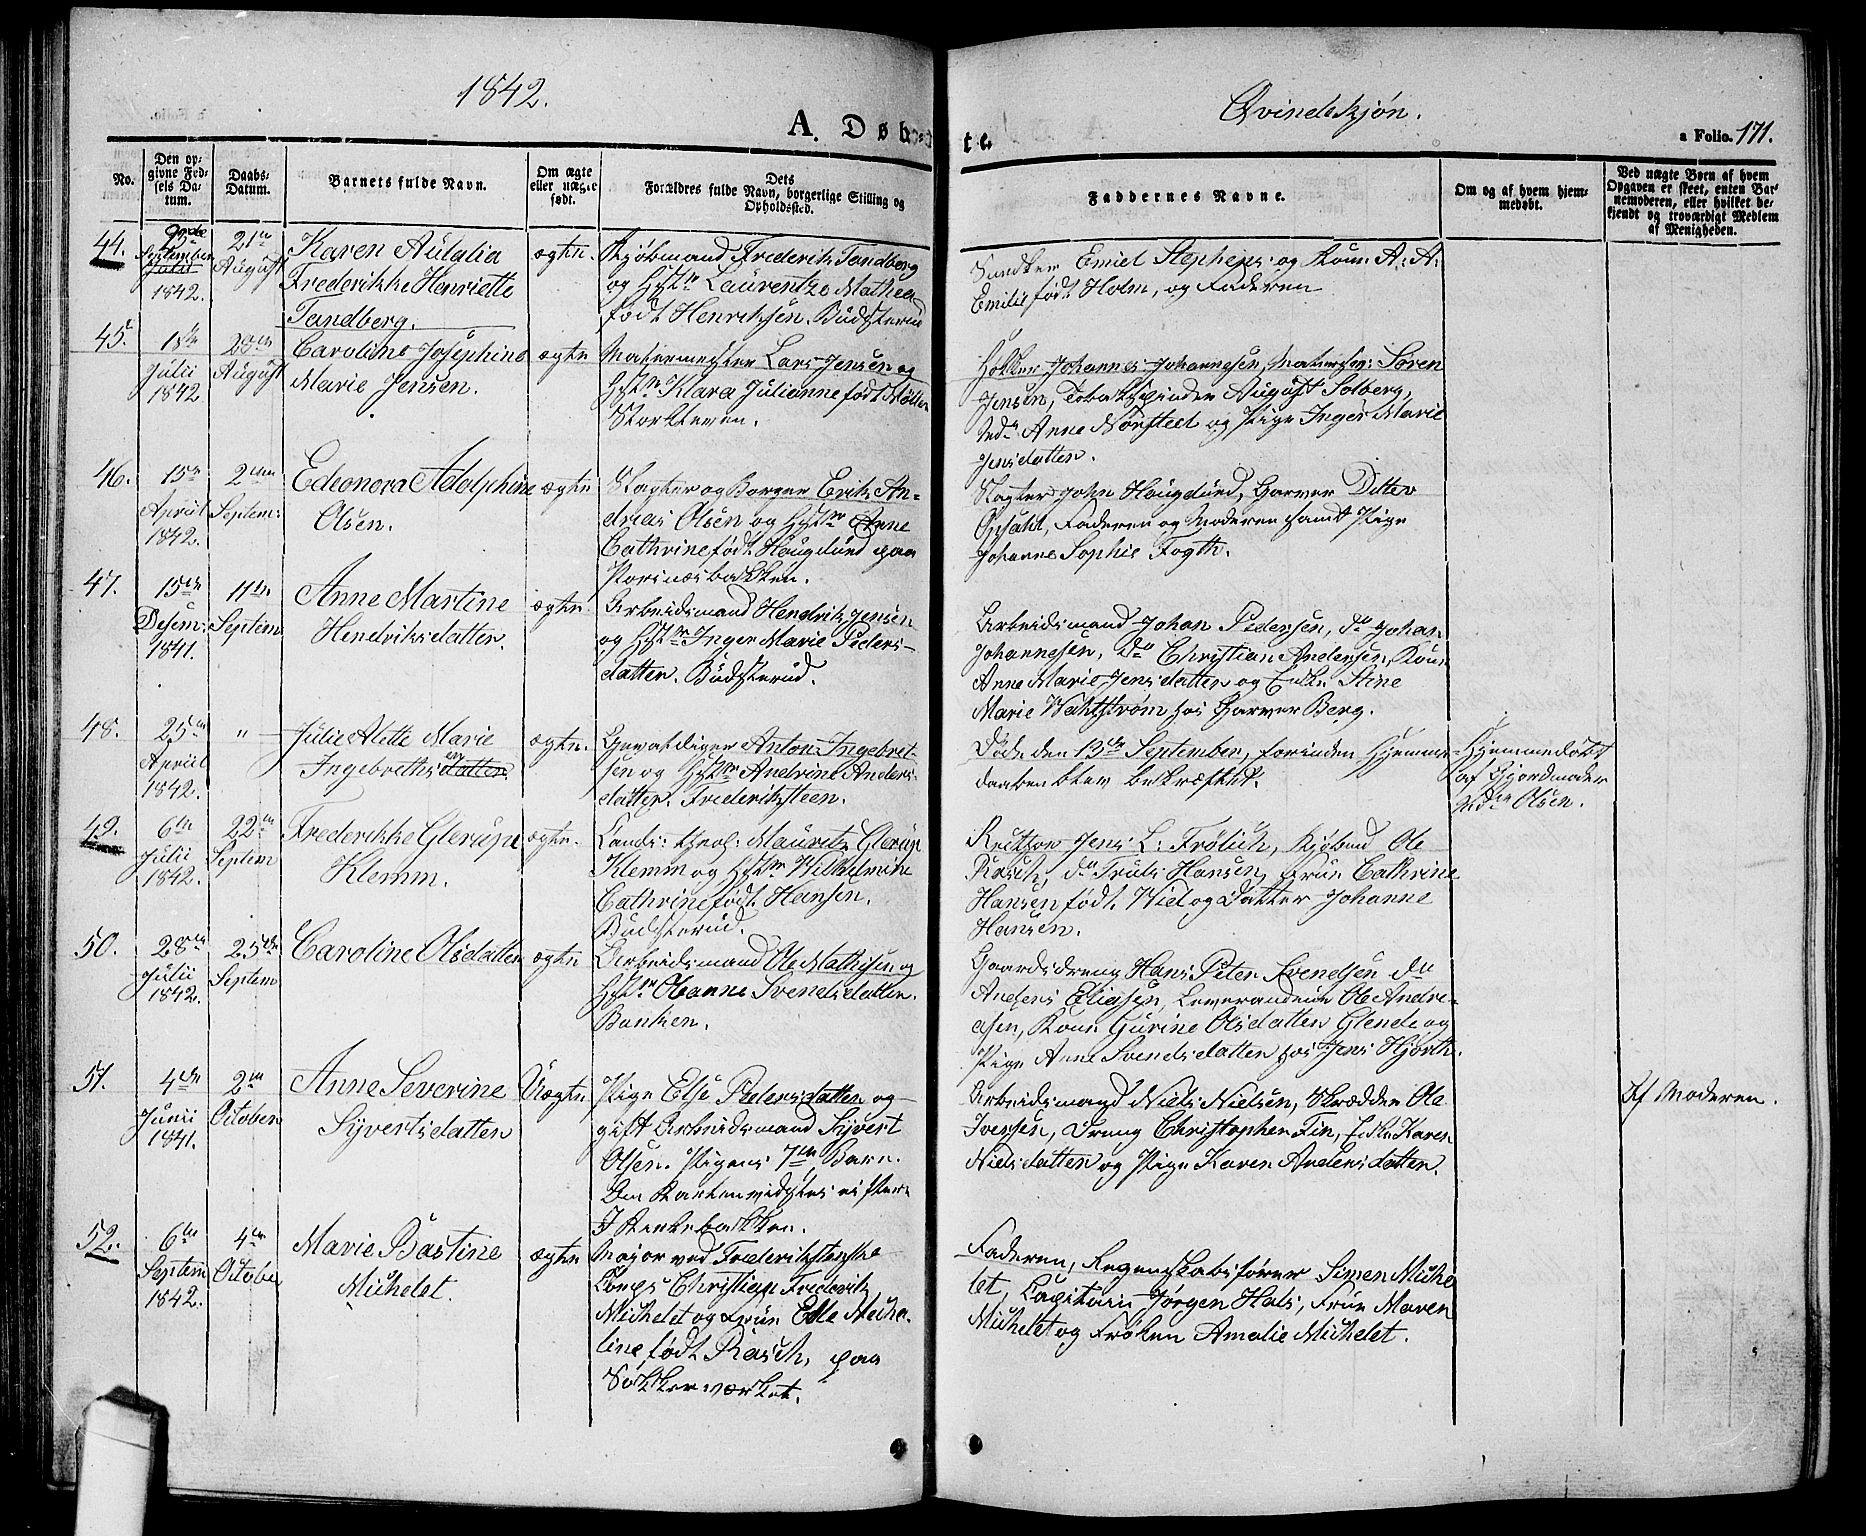 1842.
A. Døbte.
Qvindekjøn.
a Folio. 171.
No.
Den opgivne Fødsels Datum.
Daabs-Datum.
Barnets fulde Navn.
Om ægte eller uægte født.
Dets Forældres fulde Navn, borgerlige Stilling og Opholdssted.
Faddernes Navne.
Om og af hvem hjemmedøbt.
Ved uægte Børn af hvem Opgaven er skeet, enten Barnemoderen, eller hvilket bekjendt og troværdigt Medlem af Menigheden.
44.
September
Julii
1842.
21de
August
Karen Aulalia
Frederikke Henriette
Tandberg.
ægte.
Kjøbmand Frederik Tandberg
og Hstr Laurentze Mathea
født Henriksen. Budsterud
Emiel Stephens og Kone A: A:
Emilie født Holm, og Faderen
45.
18de
Julii
1842
28de
August
Caroline Josephine
Marie Jensen.
ægte
Malermester Lars Jensen og
Hstr Klara Julianne født Møller
Høkker Johannes Johannesen, Malersv: Søren
Jensen, Tobakspinder August Solberg,
Md: Anne Norsteet og Pige Inger Marie
Jensdatter.
46.
15de
April
1842.
2den
Septem:
Edeonora Adolphine
Olsen.
ægte
Slagter og Borger Erik An-
dreas Olsen og Hstr Anne
Cathrine født Haugelund paa
Porsnæsbakken.
Slagter John Haugelund, Garver Ditlev
Opsahl, Faderen og Moderen samt Pige
Johanne Sophie Fogth.
47.
15de
Desem:
1841.
11te
Septem
Anne Martine
Hendriksdatter.
ægte
Arbeidsmand Hendrik Jensen
og Hstr Inger Marie Peders-
datter. Budsterud.
Arbeidsmand Johan Pedersen, do Johan
Johannesen, do Christian Andersen, Kone
Anne Marie Jensdatter og Enke Stine
Marie Wahlstrøm hos Garver Berg.
48.
25de
April
1842.
"
Julie Alette Marie
Ingebrethsdatter
ægte.
Gevaldiger Anton Ingebret-
sen og Hstr Andrine Anders-
datter. Frederiksteen.
Døde den 13de September, forinden Hjemme-
daaben blev bekræftet.
Hjemmedøbt
af Gjordmoder
Olsen.
49.
6te
Julii
1842.
22de
Septem
Frederikke Glerupe
Klemm.
ægte.
Cand: theol: Mauritz Glerup
Klemm og Hstr Wilhelmine
Cathrine født Hansen.
Budsterud.
Rector Jens L: Frölich, Kjøbmd Ole
Rasch, do Truls Hansen, Frue Cathrine
Hansen født Wiel og Datter Johanne
Hansen.
50.
28de
Julii
1842.
25de
Septem
Caroline Olsdatter
ægte
Arbeidsmand Ole Mathisen og
Hstr Oleanne Svendsdatter.
Banken.
Gaardsdreng Hans Peter Svendsen do
Anders Eliasen, Ole Andre-
asen, Kone Gurine Olsdatter Glende og
Pige Anne Svendsdatter hos Jens Hjorth.
51.
4de
Junii
1841.
2den
October
Anne Severine
Syvertsdatter
Uægte
Pige Else Pedersdatter og
gift Arbeidsmand Syvert
Olsen. Pigens 7de Barn.
Arbeidsmand Niels Nielsen, Skrædder Ole
Iversen, Dreng Christopher Fin, Enke Karen
Nielsdatter og Pige Karen Andersdatter.
Af Moderen.
52.
6te
Septem
1842.
4de
October
Marie Bastine
Michelet.
ægte
Major ved Frederikstenske
Corps Christian Frederik
Michelet og Frue Elle Niche-
line født Rasch, paa
Sukkerværket.
Faderen, Regenskabsfører Simen Miche
let, Capitain Jørgen Hals, Frue Maren
Michelet og Frøken Amalie Michelet.